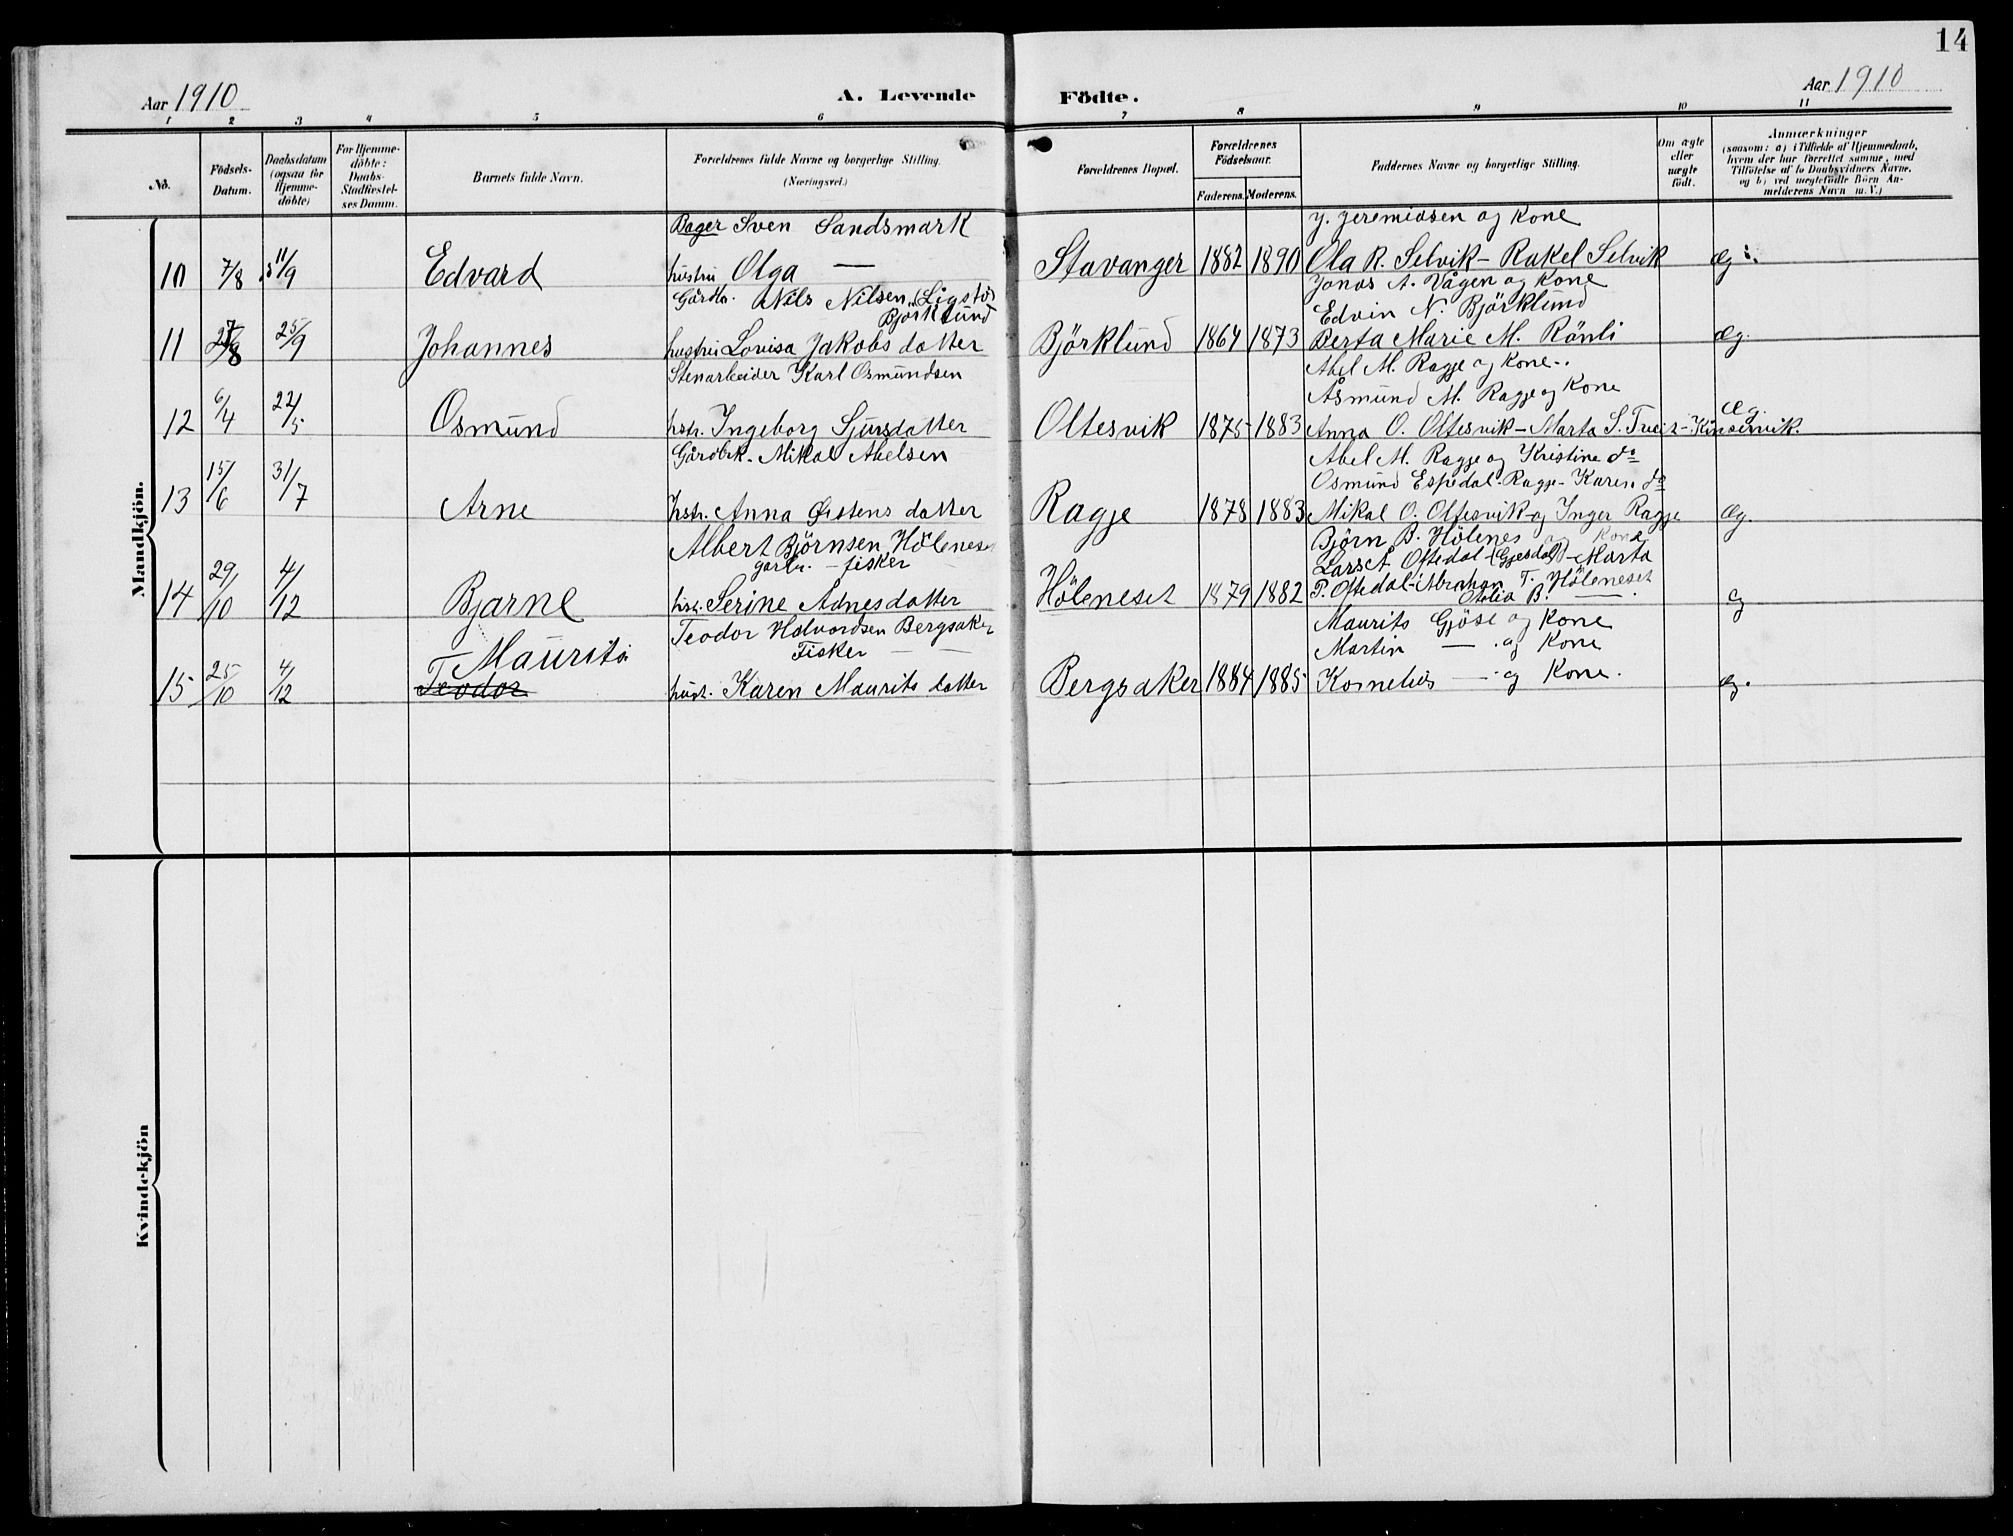 14
Aar 1910
A. Levende
Födte.
Aar 1910
1 2 3 4 5 6 7 8 9 10 11
No.
Födsels-
Datum.
Daabsdatum
(ogsaa for
Hjemme-
döbte)
For Hjemme-
döbte:
Daabs-
Stadfæstel-
ses Datum.
Barnets fulde Navn.
Forældrenes fulde Navne og borgerlige Stilling.
(Næringsvei.)
Forældrenes Bopæl.
Forældrenes
Födselsaar.
Faderens. Moderens.
Faddernes Navne og borgerlige Stilling.
Om ægte
eller
uægte
födt.
Anmærkninger
(saasom: a) i Tilfælde af Hjemmedaab,
hvem der har forrettet samme, med
Tilföielse af to Daabsvidners Navne.
og b) ved uægtefödte Börn An-
melderens Navn m. V.)
Mandkjön.
Bager Sven Sandsmark
J. Jeremiasen og Kone
10 7/8 11/9 Edvard hustru Olga — Stavanger 1882 1890 Ola R. Selvik - Rakel Selvik æg.
Gårdbr. Nils Nilsen (Ligstø)
Jonas A. Vågen og Kone
Björklund
Edvin N. Björklund
11 27/8 25/9 Johannes hustru Lovisa Jakobsdatter Björklund 1864 1873 Berta Marie M. Rönli æg.
Stenarbeider Karl Osmundsen
Abel M. Ragje og Kone..
Åsmund M. Ragje og Kone
12 6/4 22/5 Osmund hstr. Ingeborg Sjursdatter Oltesvik 1875 1883 Anna O. Oltesvik - Marta S. Tveit - Kinservik. æg.
Gårdbr. Mikal Abelsen
Abel M. Ragje og Kristine do
Osmund Espedal-Ragje - Karen do
13 15/6 31/7 Arne hstr. Anna Østensdatter Ragje 1878 1883 Mikal O. Oltesvik og Inger Ragje æg.
Albert Björnsen Höleneset
Björn B. Hölenes og Kone
gårbr. - fisker
Lars A. Oftedal (Gjesdal) - Marta
14 29/10 4/12 Bjarne hstr. Serine Adnesdatter Höleneset 1879 1882 P. Oftedal - Abraham T. Höleneset
Otolia B. — æg
Teodor Halvordsen Bergsaker
Maurits Gjöse og Kone
Fisker — —
Martin — og Kone
Maurits
15 25/10 4/12 Teodor hust. Karen Mauritsdatter Bergsaker 1884 1885 Kornelius — og Kone. æg.
Kvindekjön